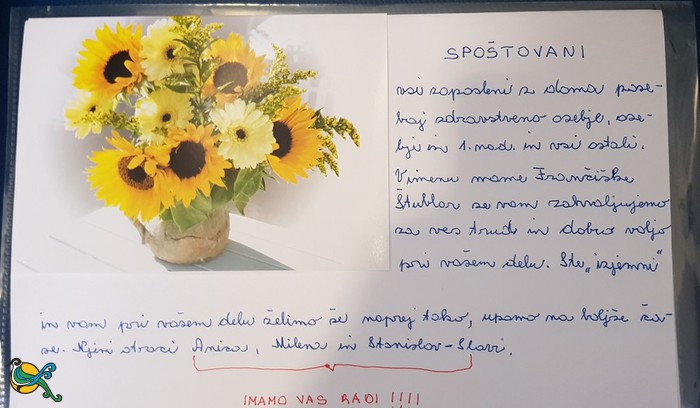 SPOŠTOVANI
vsi zaposleni z doma pose-
bej zdravstveno osebje, ose-
bje in 1. nad. in vsi ostali.
V imenu mame Frančiške
Štublar se vam zahvaljujemo
za ves trud in dobro voljo
pri vašem delu. Ste „izjemni"
in vam pri vašem delu želimo še naprej tako, upamo na boljše ča-
se. Njeni otroci Anica, Milena in Stanislav-Slavi.
IMAMO VAS RADI !!!!